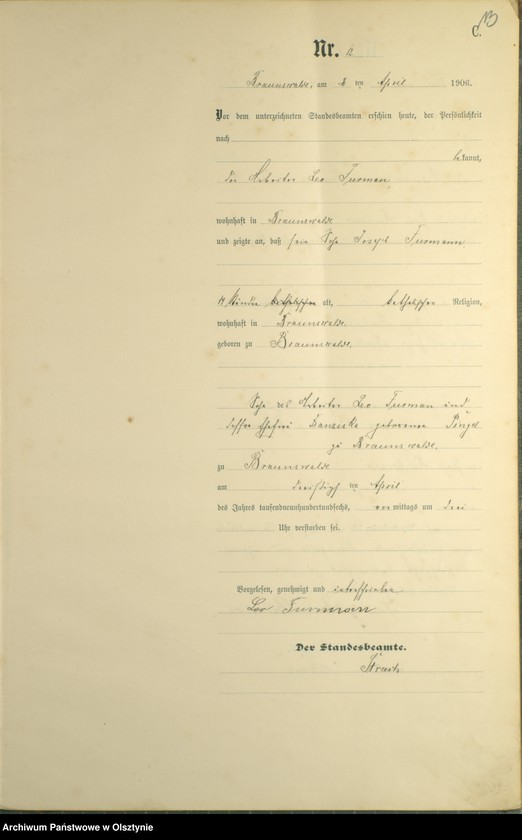 C.
Nr.
Braunswalde, am ten April 1906.
Vor dem unterzeichneten Standesbeamten erschien heute, der Persönlichkeit
nach
bekannt,
der Arbeiter Leo Turman
wohnhaft in Braunswalde
und zeigte an, daß sein Sohn Joseph Turmann
alt, katholischer Religion,
wohnhaft in Braunswalde.
geboren zu Braunswalde,
Sohn des Arbeiter Leo Turman und
dessen Ehefrau geborene
zu Braunswalde.
zu Braunswalde
am ten April
des Jahres tausendneunhundertundsechs, vormittags um drei
Uhr verstorben sei.
Vorgelesen, genehmigt und unterschrieben
Leo Turman
Der Standesbeamte.
Archiwum Państwowe w Olsztynie